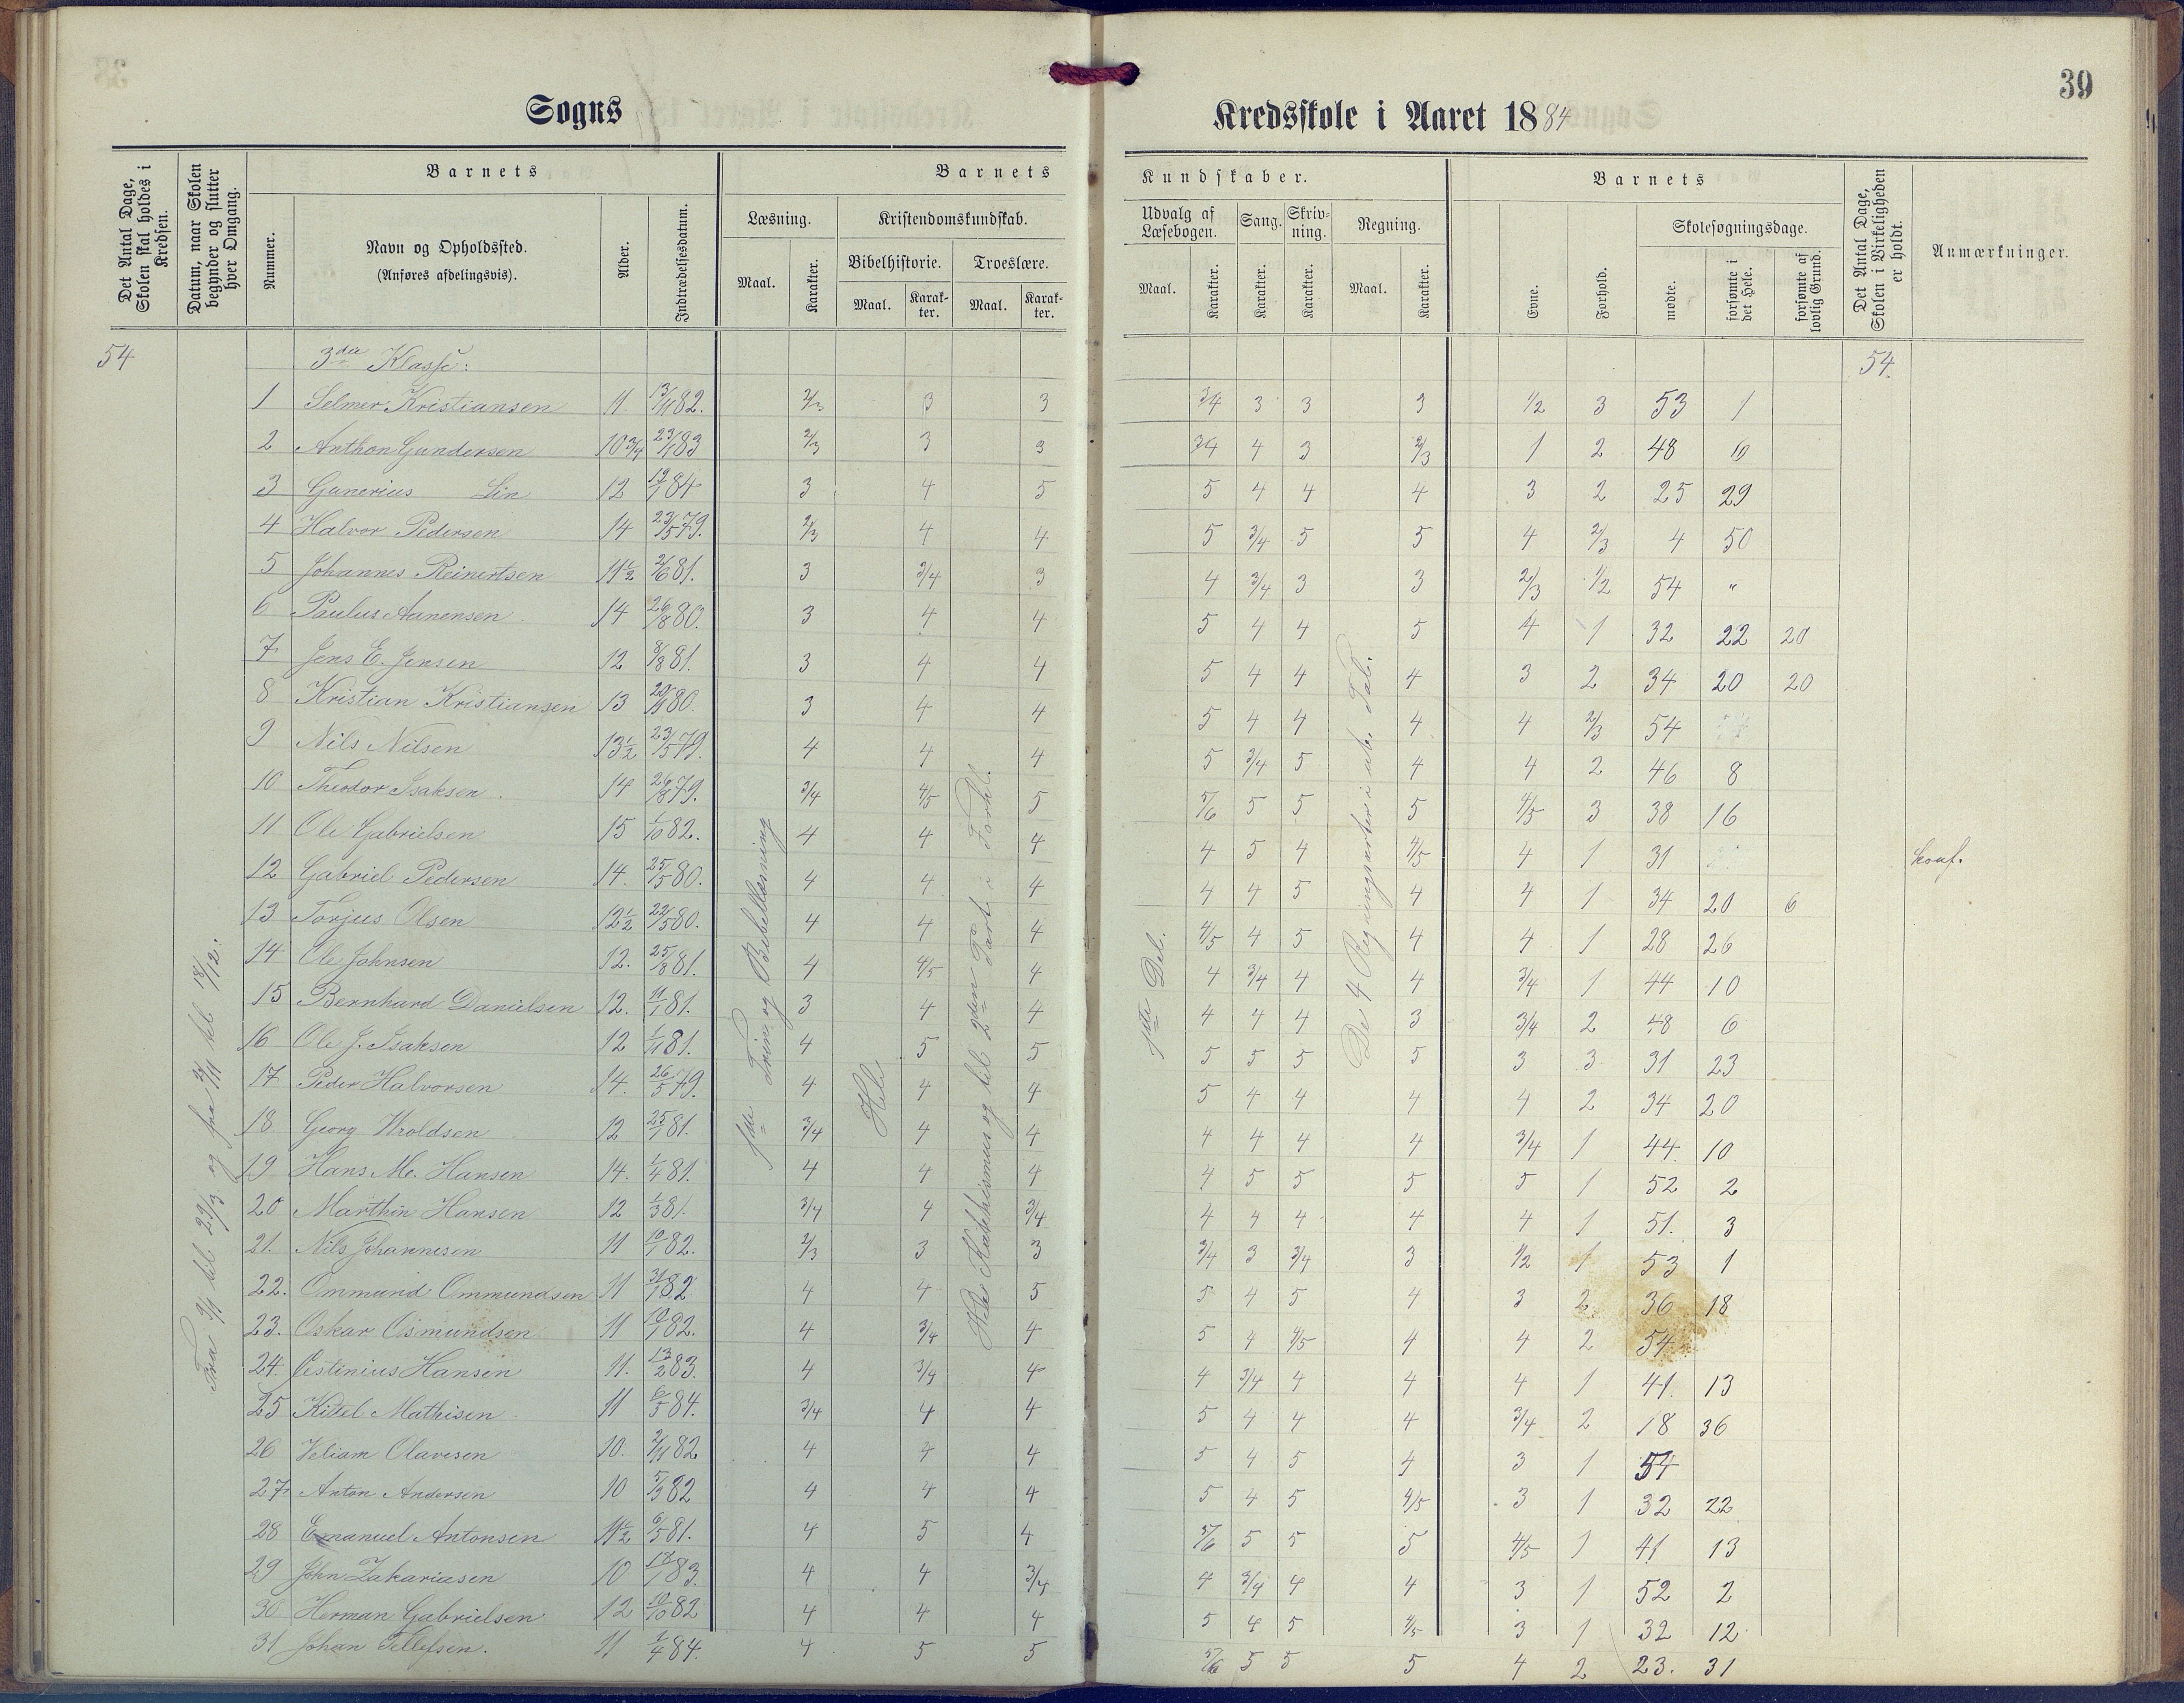 39
Sogns Kredsskole i Aaret 1884
Det Antal Dage, Skolen skal holdes i Kredsen.
Datum, naar Skolen begynder og slutter hver Omgang.
Barnets
Nummer.
Navn og Opholdssted.
(Anføres afdelingsvis).
Alder.
Indtrædelsesdatum.
Barnets Kundskaber.
Læsning.
Maal.
Karakter.
Kristendomskundskab.
Bibelhistorie.
Maal.
Karakter.
Troeslære.
Maal.
Karakter.
Udvalg af Læsebogen.
Maal.
Karakter.
Sang.
Karakter.
Skrivning.
Karakter.
Regning.
Maal.
Karakter.
Barnets
Evne.
Forhold.
Skolesøgningsdage.
mødte.
forsømte i det Hele.
forsømte af lovlig Grund.
Det Antal Dage, Skolen i Virkeligheden er holdt.
Anmærkninger.
54 3die Klasse: 54
1 Selmer Kristiansen 11. 13/11 82. 2/3 3 3 3/4 3 3 3 1/2 3 53 1
2 Anthon Gundersen 10 3/4 23/1 83 2/3 3 3 3/4 4 3 2/3 1 2 48 6
3 Gunerius Lin 12 19/1 84 3 4 5 5 4 4 4 3 2 25 29
4 Halvor Pedersen 14 23/5 79. 2/3 4 4 5 3/4 5 5 4 2/3 4 50
5 Johannes Reinertsen 11 1/2 2/6 81. 3 3/4 3 4 3/4 3 3 2/3 1/2 54 "
6 Paulus Aanensen 14 26/8 80. 3 4 4 5 4 4 5 4 1 32 22 20
7 Jens E. Jensen 12 8/8 81. 3 4 4 5 4 4 4 3 2 34 20 20
8 Kristian Kristiansen 13 80. 3 4 4 5 4 4 4 4 2/3 54
9 Nils Nilsen 13 1/2 23/5 79. 4 4 4 5 3/4 5 4 4 2 46 8
10 Theodor Isaksen. 14 26/8 79. 3/4 4/5 5 5/6 5 5 5 4/5 3 38 16
11 Ole Gabrielsen 15 1/10 82. 4 4 4 4 5 4 4/5 4 1 31 konf.
12 Gabriel Pedersen 14. 25/5 80. 4 4 4 4 4 5 4 4 1 34 20 6
13 Torjus Olsen 12 1/2 22/5 80. 4 4 4 4/5 4 5 4 4 1 28 26
14 Ole Johnsen 12. 25/8 81. 4 4/5 4 4 3/4 4 4 3/4 1 44 10
15 Bernhard Danielsen 12. 11/1 81. 3 4 4 4 4 4 3 3/4 2 48 6
16 Ole J. Isaksen 12 1/11 81. 4 5 5 5 5 5 5 3 3 31 23
17 Peder Halvorsen 14. 26/5 79. 4 4 4 5 4 4 4 4 2 34 20
18 Georg Wroldsen 12 25/1 81. 3/4 4 4 4 4 4 4 3/4 1 44. 10
19 Hans M. Hansen 14. 1/4 81. 4 4 4 4 5 5 5 5 1 52 2
20 Marthin Hansen 12 1/3 81. 3/4 4 3/4 4 4 4 4 4 1 51. 3
21. Nils Johannesen 11 10/1 82. 2/3 3 3 3/4 3 3/4 3 1/2 1 53 1
22. Ommund Ommundsen 11 31/1 82 4 4 5 5 4 5 4 3 2 36 18
23. Oskar Osmundsen 11 10/1 82. 4 3/4 4 5 4 4/5 4 4 2 54
24. Estinius Hansen 11. 13/2 83. 4 3/4 4 4 3/4 4 4 4 1 41. 13
25 Kittel Mathisen 11 6/5 84. 3/4 4 4 5 4 4 4 3/4 2 18 36
26 Veliam Olavesen 10. 2/11 82 4 4 4 5 4 5 4 3 1 54
27 Anton Andersen 10 5/9 82 4 4 4 5 4 5 4/5 3 1 32 22
28 Emanuel Antonsen 11 1/2 6/5 81. 4 5 4 5/6 5 5 5 4/5 1 41 13
29 John Zakariasen 10 83. 4 4 3/4 4 3/4 4 4 3 1 52 2
30 Herman Gabrielsen 12 10/10 82 4 4 4 5 4 5 4/5 3 1 32 12
31 Johan Tellefsen. 11 1/4 84. 4 5 5 5/6 5 5 5 4 2 23. 31
Fra 9/1 til 29/3 og fra til 18/12.
1ste Trin og Bibellæsning
Hele
Hele Katekismus og til 2den Part i Forkl.
1ste Del.
De 4 Regningsarter i ub. Tal.